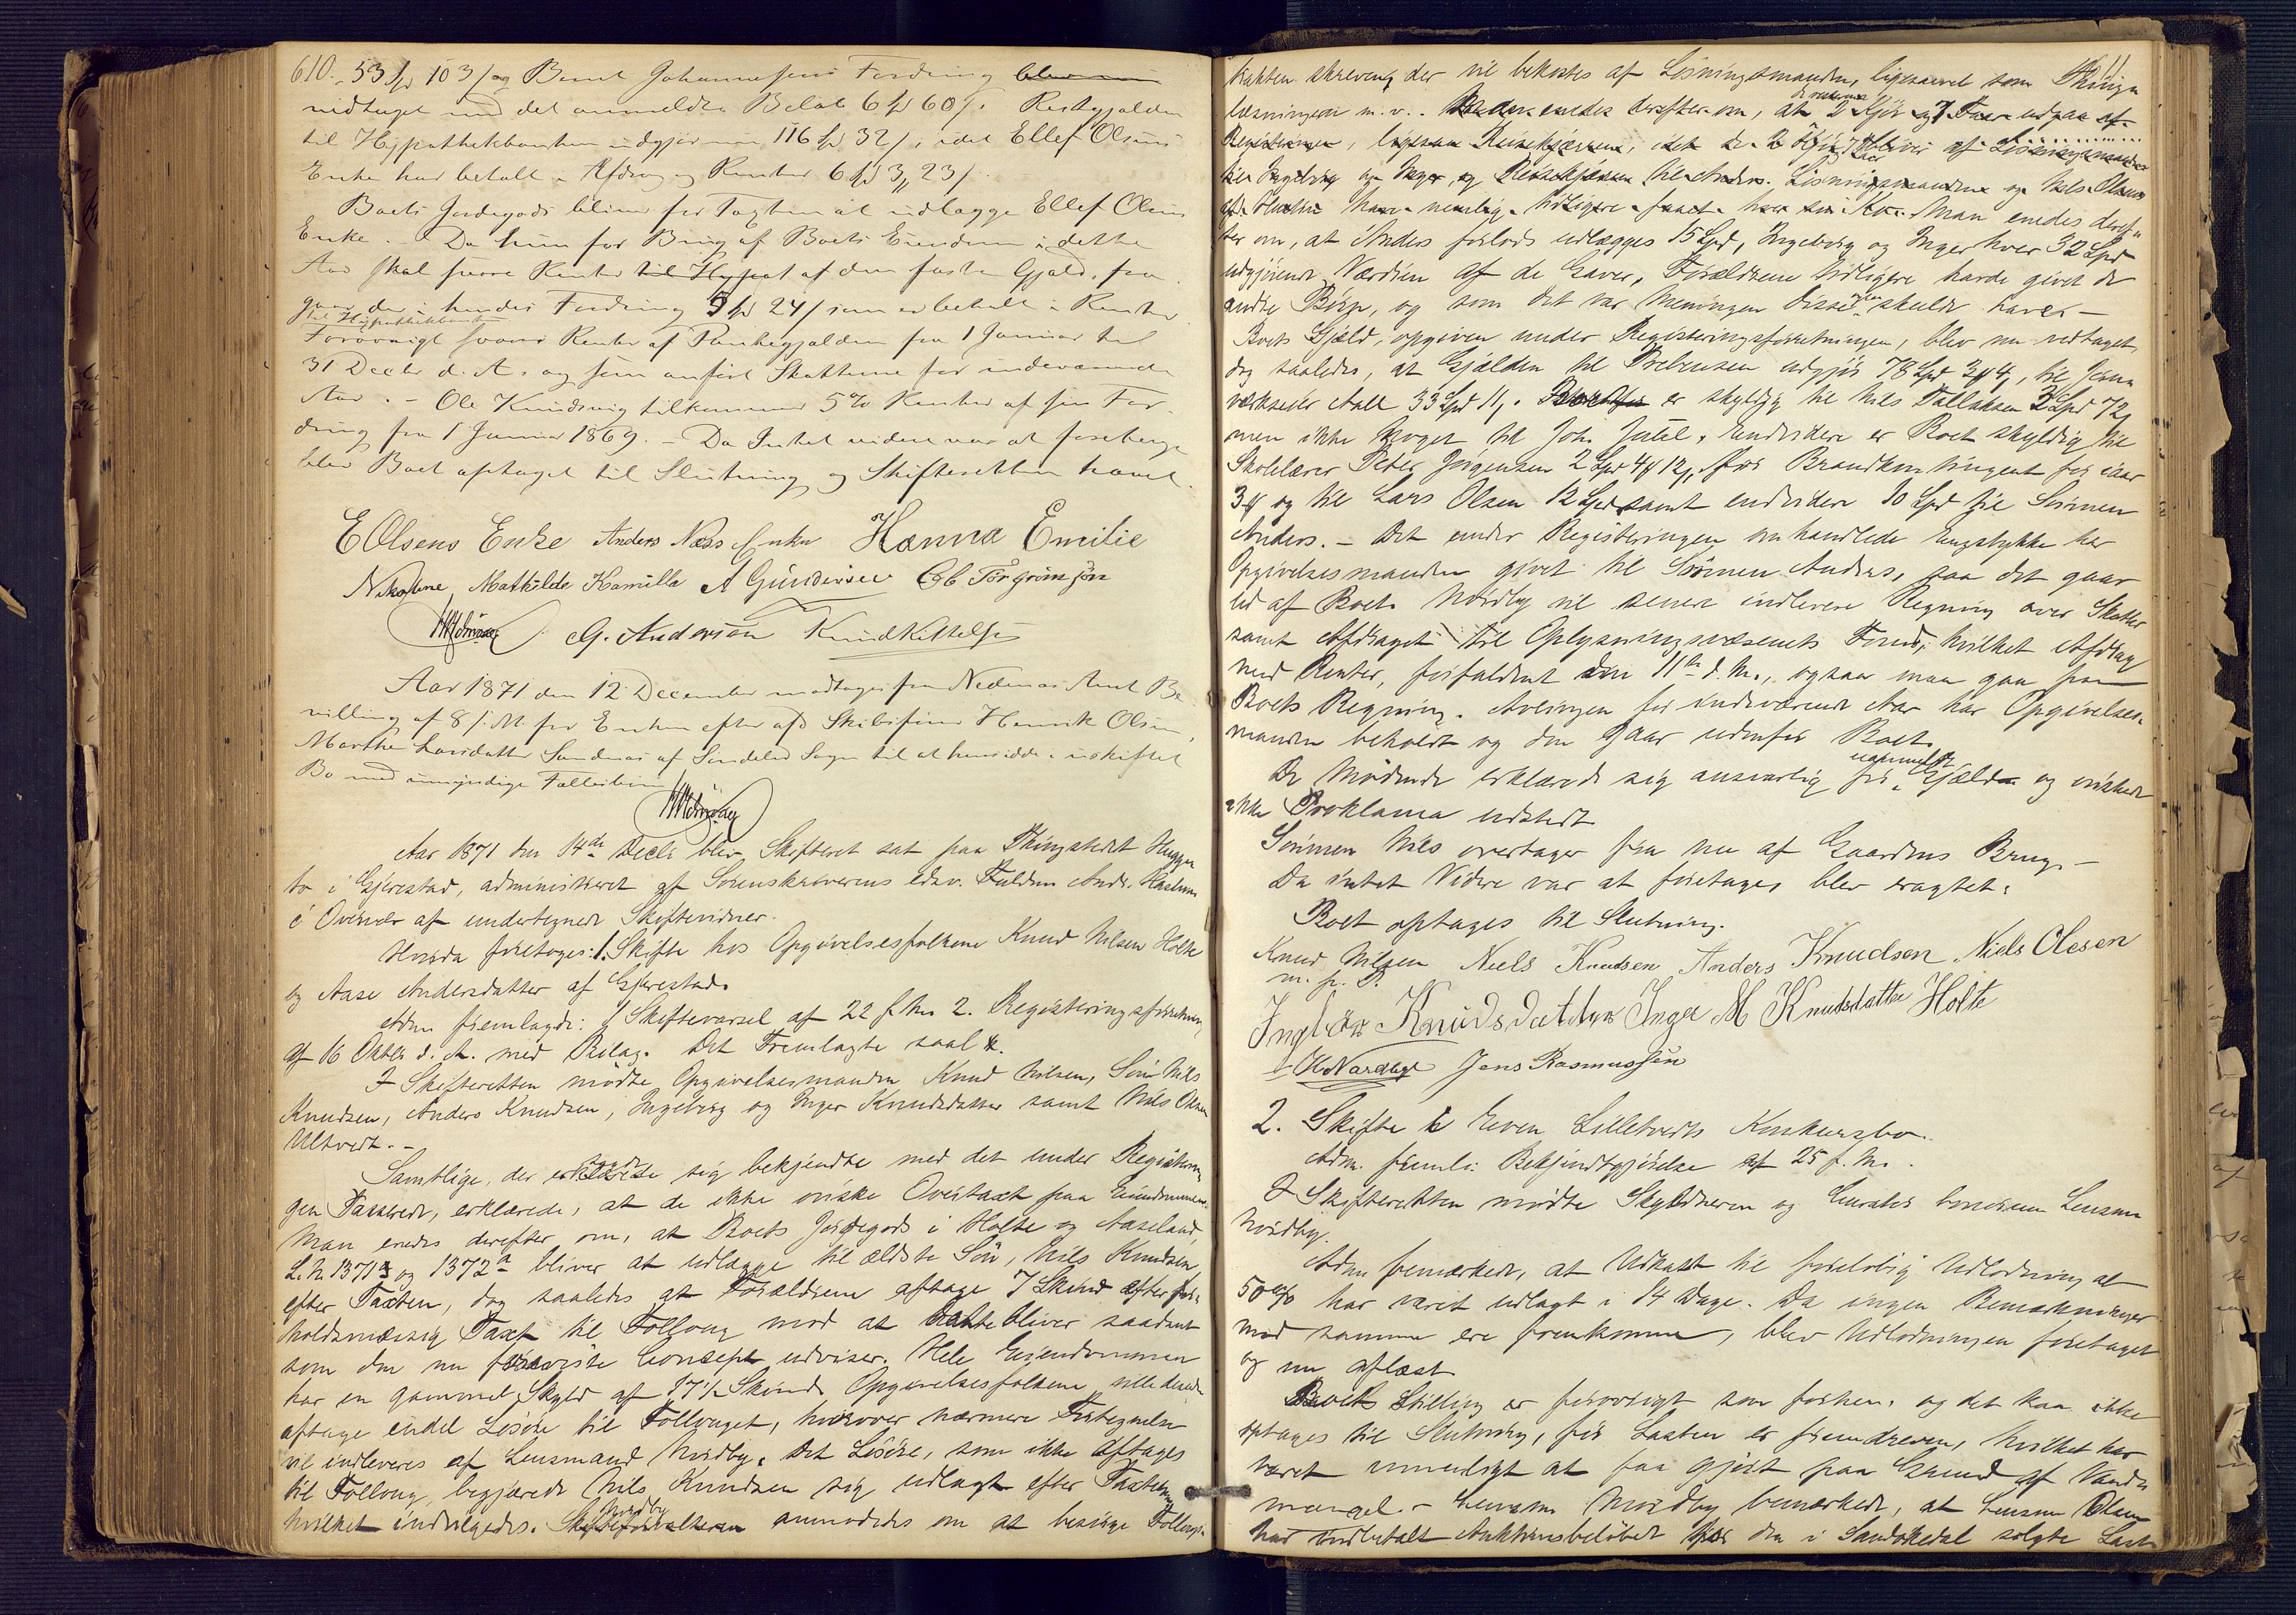 610. 53 Spd 103 ß og Bernt Johannesens Fordring blev nu
vedtaget med det anmeldte Beløb 6 Spd 60 ß. Restgjælden
til Hypothekbanken udgjør nu 116 Spd 32 ß, idet Ellef Olsens
Enke har betalt i Afdrag og Renter 6 Spd 3 23 ß.
Boets Jordegods bliver for Taxten at udlægge Ellef Olsens
Enke. - Da hun for Brug af Boets Eiendom i dette
Aar skal svare Renter til Hypot af den faste Gjæld, fra
gaar der i hendes Fordring 5 Spd 24 ß som er betalt i Renter
til Hypothekbanken
Forøvrigt svares Renter af Panthegjælden fra 1 Januar til
31 Decbr d. A. og som anført Skatterne for indeværende
Aar. - Ole Knudsvig tilkommer 5% Renter af sin For-
dring fra 1 Januar 1869. - Da Intet videre var at foretage
blev Boet optaget til Slutning og Skifteretten hævet.
E Olsens Enke Anders Næss Enke Hanna Emilie
Nikoline, Mathilde Kamilla A Gundersen
G. Andersen Knud Kittelsen
Aar 1871 den 12 December modtages fra Nedenæs Amt Be
villing af 8 f. M. for Enken efter afd Skibsfører Henrik Olsen,
Marthe Larsdatter Sandnæs af Søndeled Sogn til at hensidde i uskiftet
Bo med umyndige Fællesbørn
Aar 1871 den 14de Decbr blev Skifteret sat paa Thingstedet Huggen
to i Gjerestad, administreret af Sorenskriverens edsv. Fuldm Andr.
i Overvær af undertegnede Skiftevidner.
Hvorda foretoges: 1. Skifte hos Opgivelsesfolkene Knud Nilsen Holte
og Aase Andersdatter af Gjerestad.
Adm fremlagde: 1 Skiftevarsel af 22 f. M. 2. Registeringsforretning
af 16 Oktbr d. A. med Bilag. Det Fremlagte saal.
I Skifteretten mødte Opgivelsesmanden Knud Nilsen, Søn Nils
Knudsen, Anders Knudsen, Ingeborg og Inger Knudsdatter samt Nils Olsen
Ultveit. -
Samtlige, der erklærede sig bekjendte med det under Registerin
gen Passerede, erklærede, at de ikke ønske Overtaxt paa Eiendommene.
Man enedes derefter om, at Boets Jordegods i Holte og Aaseland,
L. N. 1371a og 1372a bliver at udlægge til ældste Søn, Nils Knudsen
efter Taxten, dog saaledes at Forældrene aftage 7 Skind efter for-
holdsmæssig Taxt til Føllaug mod at dette bliver saadant
som den nu foreviste Concept udviser. Hele Eiendommen
har en gammel Skyld af 17½ Skind. Opgivelsesfolkene ville desuden
aftage endel Løsøre til Føllauget, hvorover nærmere Fortegnelse
vil indleveres af Lensmand Nordby. Det Løsøre, som ikke aftages
til Føllaug, begjærede Nils Knudsen sig udlagt efter Taxten,
Nordby
hvilket indvilgedes. Skifteforvalteren anmodedes om at besørge Føllaugs-
611
trakten skreven, der vil bekostes af Løsningsmanden, ligesaavel som Thing-
læsningen m. v. Man enedes derefter om, at 2 Kjør og 7 Faar udgaa af
Registeringen, ligesaa Reisekjærren, idet de 2 Kjør bliver af Løsningsmanden
til Ingeborg og Inger, og Reisekjærren til Anders. Løsningsmanden og Nils Olsens
Hustru have nemlig tidligere faaet hver sin Ko. Man enedes deref-
ter om, at Anders forlods udlægges 15 Spd, Ingeborg og Inger hver 32 Spd
udgjørende Værdien af de Gaver, Forældrene tidligere havde givet de
andre Børn, og som det var Meningen disse skulde have. -
Boets Gjæld, opgiven under Registeringsforretningen, blev nu vedtaget,
dog saaledes, at Gjælden til Prebensen udgjør 78 Spd 3 4, til Jern-
værkseier Aall 33 Spd 11. Boet er skyldig til Nils Tallaksen 2 Spd 72
men ikke Noget til Joh. Endvidere er Boet skyldig til
Skolelærer Peder Jørgensen 2 Spd 4 12, for Brandkontingent for iaar
3 og til Lars Olsen 12 Spd samt endvidere 10 Spd til Sønnen
Anders. - Det under Registeringen omhandlede Engstykke har
Opgivelsesmanden givet til Sønnen Anders, saa det gaar
ud af Boet. Nordby vil senere indlevere Regning over Skatter
samt Afdraget til Oplysningsvæsenets Fond, hvilket Afdrag
med Renter, forfaldent den 11te d. M., ogsaa maa gaa paa
Boets Regning. Avlingen for indeværende Aar har Opgivelses-
manden beholdt og den gaar udenfor Boet.
uanmeldt
De Mødende erklærede sig ansvarlig for Gjælden og ønskede
ikke Proklama udstedt.
Sønnen Nils overtager fra nu af Gaardens Brug. -
Da intet Videre var at foretage, blev eragtet:
Boet optages til Slutning.
Knud Nilsen Niels Knudsen Anders Knudsen Niels Olesen
m. p. P.
Ingbør Knudsdatter Inger M Knudsdatter Holte
H Nordbye Jens Rasmussen
2. Skifte i Even Lilletvedts Konkursbo.
Adm. freml: Bekjendtgjørelse af 25 f. M.
I Skifteretten mødte Skyldneren og Curator bonorum Lensm
Nordby.
Adm bemærkede, at Udkast til foreløbig Udlodning af
50% har været udlagt i 14 Dage. Da ingen Bemærkninger
mod samme ere fremkomne, blev Udlodningen foretaget
og nu aflæst
Boets Stilling er forøvrigt som forhen, og det kan ikke
optages til Slutning, før Lasten er fremdreven, hvilket har
været umuligt at faa gjort paa Grund af Vand-
mangel. - Lensm Nordby bemærkede, at Lensm Olsen
har indbetalt Auktionsbeløbet for den i Sandøkedal solgte Last